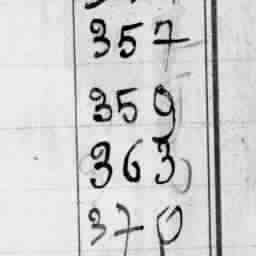 357
359
363
370